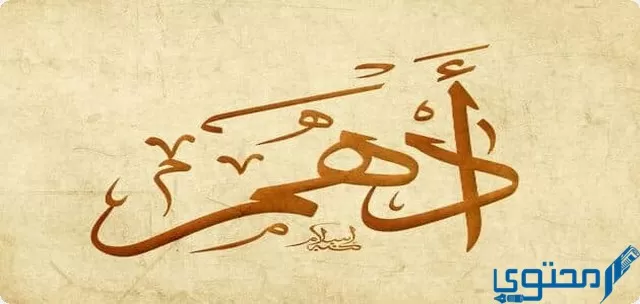 أدهم
محتوى